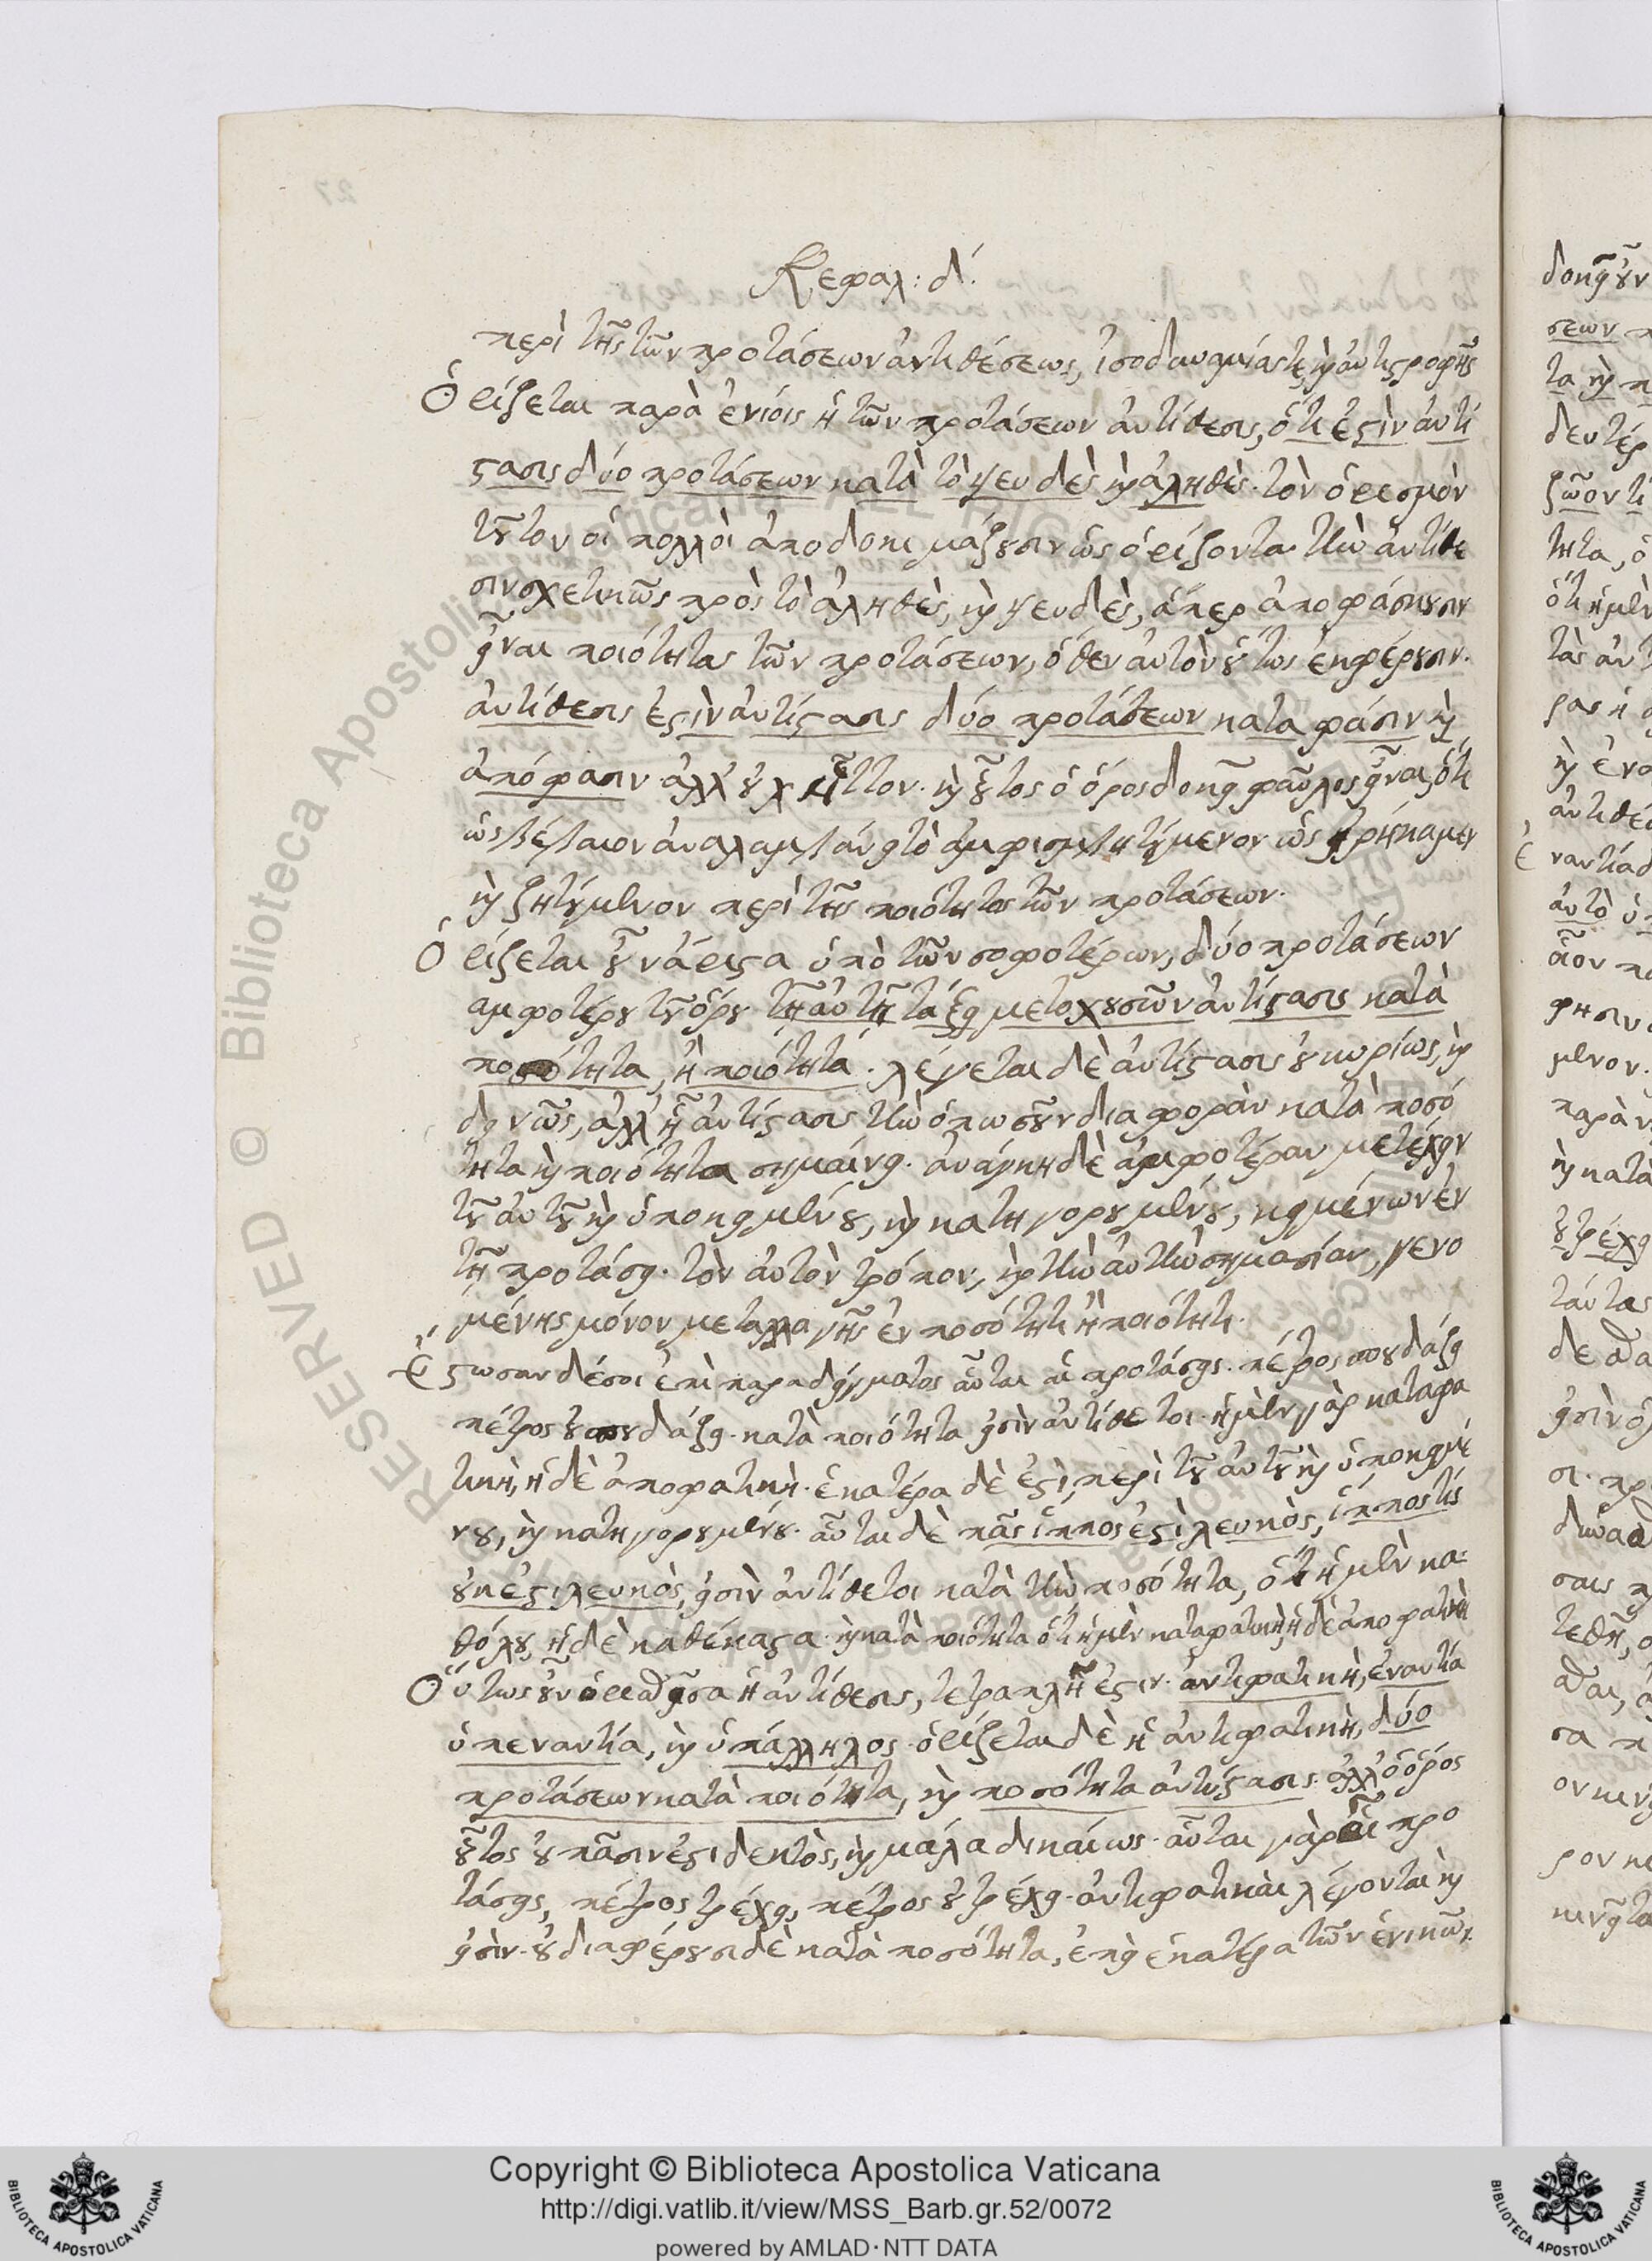 Κεφαλ: δ´.
περὶ τῆς τῶν προτάσεων ἀντιθέσεως, ἰσοδυναμίας τε, καὶ ἀντιστροφῆς
Ὁρίζεται παρὰ ἐνίοις ἡ τῶν προτάσεων ἀντίθεσις, ὅτι ἐστὶν ἀντί
στασις δύο προτάσεων κατὰ τὸ ψευδὲς καὶ ἀληθὲς. τὸν ὁρισμὸν
τοῦτον οἱ πολλοὶ ἀποδοκιμάζουσιν ὡς ὁρίζοντα τὴν ἀντίθε
σιν σχετικῶς πρὸς τὸ ἀληθὲς, καὶ ψευδὲς, ἅπερ ἀποφάσκουσιν
εἶναι ποιότητας τῶν προτάσεων, ὅθεν αὐτὸν οὕτως ἐκφέρουσιν.
ἀντίθεσις ἐστὶν ἀντίστασις δύο προτάσεων κατα φάσιν καὶ
ἀπόφασιν. ἀλλ' οὐχ ἧττον καὶ οὗτος ὁ ὅρος δοκεῖ φαῦλος εἶναι, ὅτι
ὡς βέβαιον ἀναλαμβάνει τὸ ἀμφισβητούμενον ὡς εἰρήκαμεν
καὶ ζητούμενον περὶ τῆς ποιότητος τῶν προτάσεων.
Ὁρίζεται οὖν ἄριστα ὑπὸ τῶν σοφοτέρων, δύο προτάσεων
αμφοτέρου τοῦ ὅρου τῇ αὐτῇ τάξει μετοχουσῶν ἀντίστασις κατὰ
ποσότητα, ἢ ποιότητα. λέγεται δὲ ἀντίστασις οὐ κυρίως, καὶ
δεινῶς, ἀλλ' ἡ ἀντίστασις τὴν ὁπωσοῦν διαφορὰν κατὰ ποσό
τητα καὶ ποιότητα σημαίνει. ἀνάγκη δὲ ἀμφοτέραν μετέχειν
τοῦ αὐτοῦ καὶ ὑποκειμένου, καὶ κατηγορουμένου, κειμένων ἐν
τῇ προτάσει τὸν αὐτὸν τρόπον, καὶ τὴν αὐτὴν σημασίαν, γενο
μένης μόνον μεταλλαγῆς ἐν ποσότητι ἢ ποιότητι.
Ἔστωσαν δέσοι ἐπὶ παραδείγματος αὗται αἱ προτάσεις. πέτρος σπουδάζει
πέτρος οὐ σπουδάζει. κατὰ ποιότητα εἰσὶν ἀντίθετοι. ἡ μὲν γὰρ καταφα
τικὴ, ἡ δὲ ἀποφατικὴ. ἑκατέρα δὲ ἐστὶ περὶ τοῦ αὐτοῦ καὶ ὑποκειμέ
νου, καὶ κατηγορουμένου. αὗται δὲ πᾶς ἵππος ἐστὶ λευκὸς, ἵππος τὶς
οὐκ ἐστι λευκὸς, εἰσὶν ἀντίθετοι κατὰ τὴν ποσότητα, ὅτι ἡ μὲν κα-
θόλου, ἡ δὲ καθέκαστα. καὶ κατὰ ποιότητα ὅτι ἡ μὲν καταφατικὴ, ἡ δὲ ἀποφατικὴ
Οὕτως οὖν ὁρισθεῖσα ἡ ἀντίθεσις, τετραπλῆ ἐστιν. ἀντιφατικὴ, ἐναντία
ὑπεναντία, καὶ ὑπάλληλος. ὁρίζεται δὲ ἡ ἀντιφατικὴ, δύο
προτάσεων κατὰ ποιότητα, καὶ ποσότητα ἀντίστασις. ἀλλ' ὁ ὅρος
οὗτος οὐ πᾶσιν ἐστι δεκτὸς, καὶ μάλα δικαίως. αὗται γὰρ αἱ προ
τάσεις, πέτρος τρέχει, πέτρος οὐ τρέχει. ἀντιφατικαὶ λέγονται καὶ
εἰσὶν. οὐ διαφέρουσι δὲ κατὰ ποσότητα, ἐπεὶ ἑκατέρα τῶν ἑνικῶν.
Copyright © Biblioteca Apostolica Vaticana
http://digi.vatlib.it/view/MSS_Barb.gr.52/0072
powered by AMLAD·NTT DATA